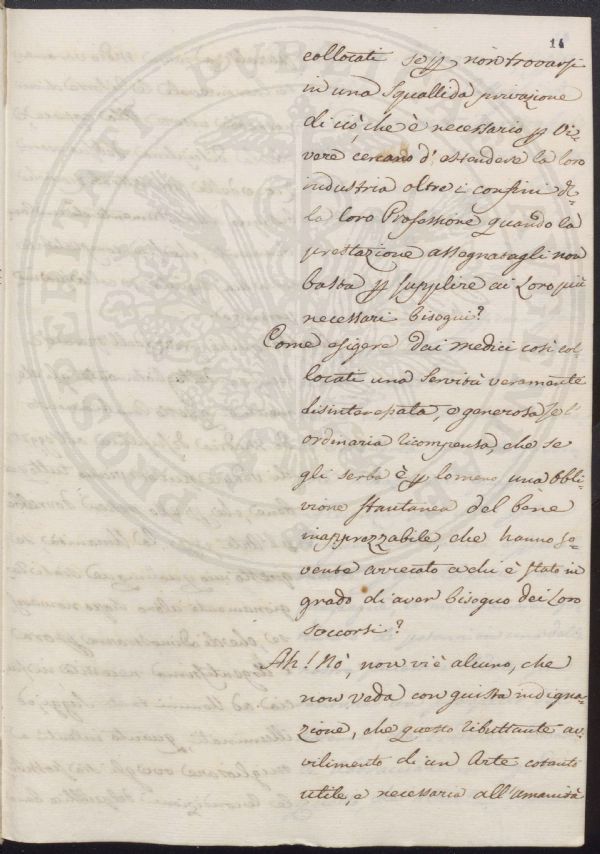 14
collocati se p non trovarsi
in una squallida privazione
di ciò, che è necessario p vi-
vere cercano d'estendere la loro
industria oltre i confini de-
la loro Professione quando la
prestazione assegnatagli non
basta p supplire ai loro più
necessari bisogni?
Come esigere dai medici così col-
locati una servitù veramente
disinteressata, e generosa se l'
ordinaria ricompensa, che se
gli serba è p lo meno una obbli-
vione stantanea del bene
inapprezzabile, che hanno so-
vente arrecato a chi è stato in
grado di aver bisogno dei loro
soccorsi?
Ah! Nò, non vi è alcuno, che
non veda con giusta indigna-
zione, che questo ributtante av-
vilimento di un Arte cotanto
utile, e necessaria all'umanità
PROSPERITATI PUBLICAE